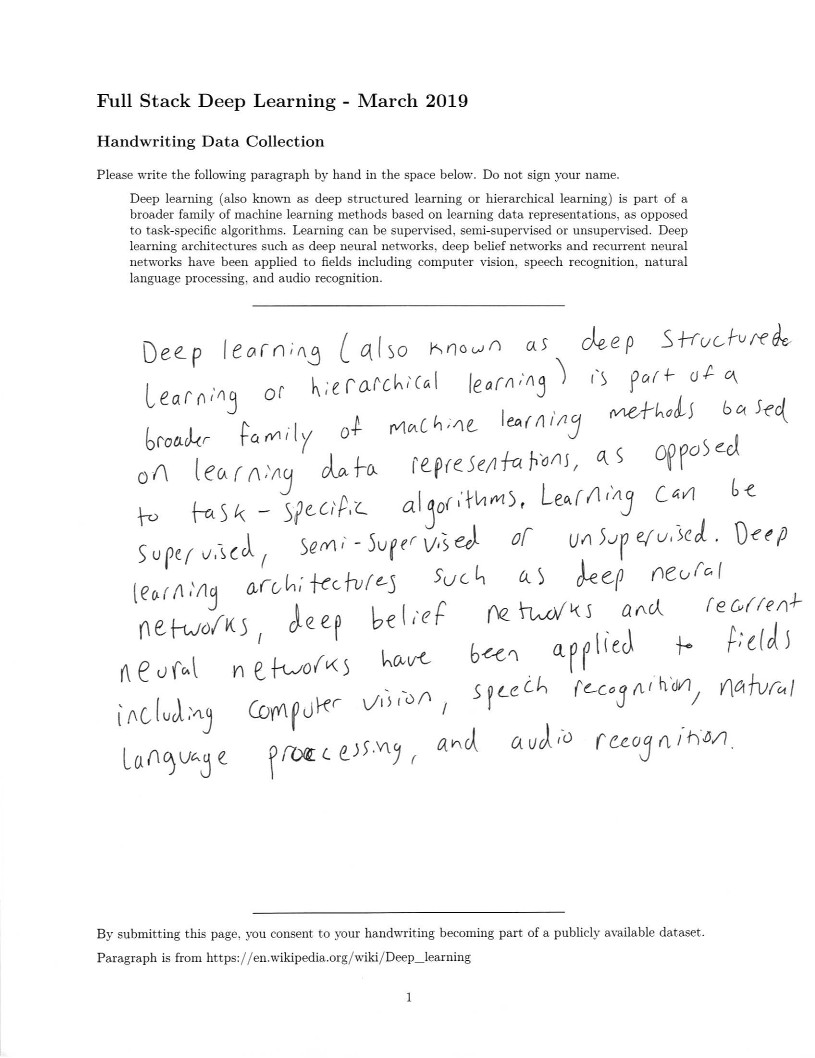 Full Stack Deep Learning - March 2019
Handwriting Data Collection
Please write the following paragraph by hand in the space below. Do not sign your name.
Deep learning (also known as deep structured learning or hierarchical learning) is part of a
broader family of machine learning methods based on learning data representations, as opposed
to task-specific algorithms. Learning can be supervised, semi-supervised or unsupervised. Deep
learning architectures such as deep neural networks, deep belief networks and recurrent neural
networks have been applied to fields including computer vision, speech recognition, natural
language processing, and audio recognition.
Deep learning (also known as deep structured
learning or hierarchical learning) is part of a
broader family of machine learning methods based
on learning data representations, as opposed
to task-specific algorithms. Learning can be
supervised, semi-supervised or unsupervised. Deep
learning architectures such as deep neural
networks, deep belief networks and recurrent
neural networks have been applied to fields
including computer vision, speech recognition, natural
language processing, and audio recognition.
By submitting this page, you consent to your handwriting becoming part of a publicly available dataset.
Paragraph is from https://en.wikipedia.org/wiki/Deep_learning
1